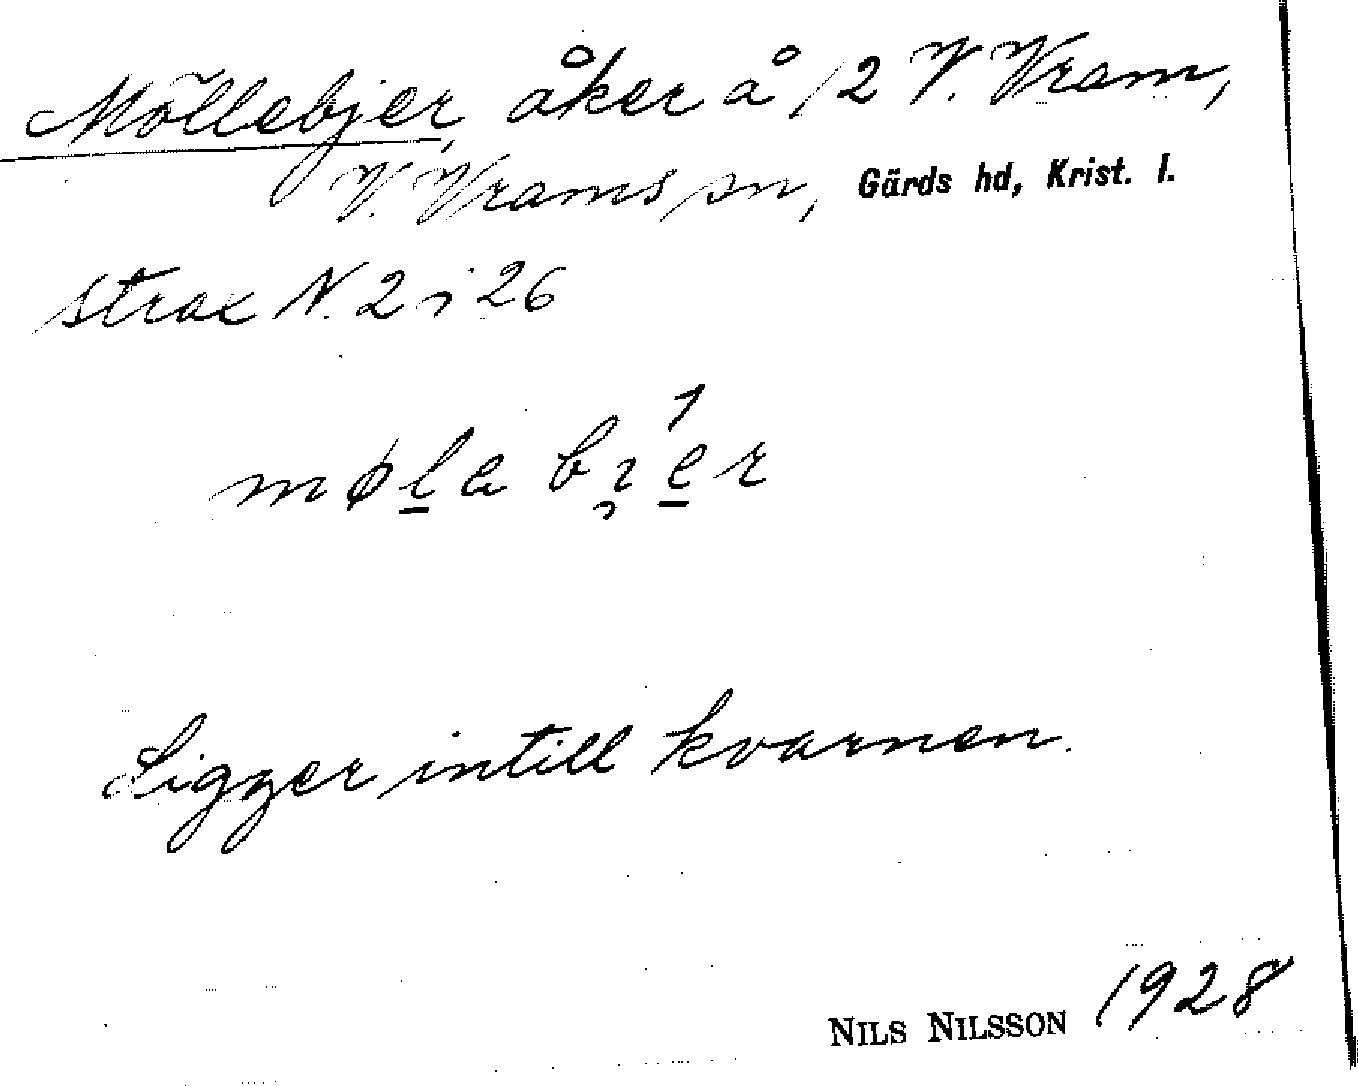 Möllebjer, åker å 12 V. Vram,
V. Vrams sn, Gärds hd, Krist. l.
strax N. 2 i 26
møla bi̯er
Ligger intill kvarnen.
NILS NILSSON 1928